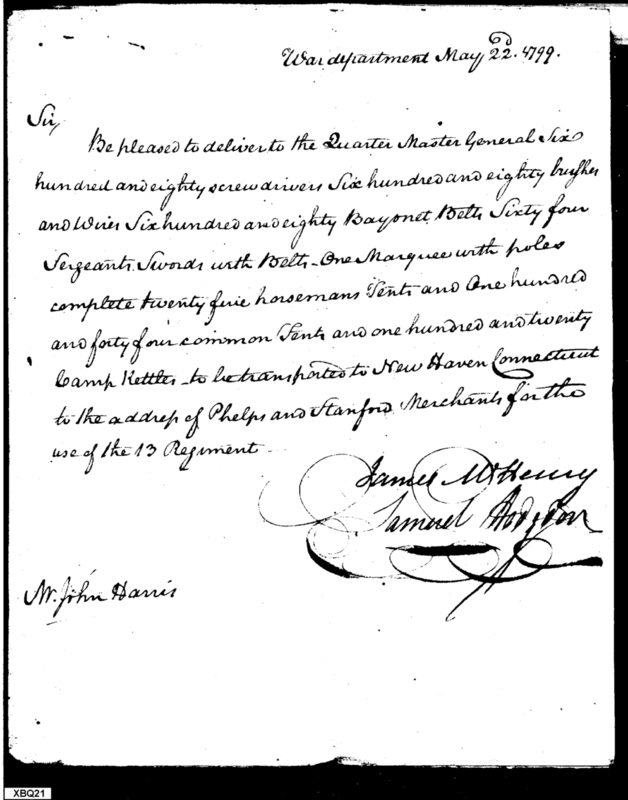 War department May 22.d 1799.
Sir,
Be pleased to deliver to the Quarter Master General Six
hundred and eighty screw drivers Six hundred and eighty brushes
and Wires Six hundred and eighty Bayonet Belts Sixty four
Sergeants Swords with Belts - One Marquee with poles
complete twenty five horsemans Tents and One hundred
and forty four common Tents and one hundred and twenty
Camp Kettles - to be transported to New Haven Connecticut
to the address of Phelps and Stanford Merchants for the
use of the 13 Regiment
James McHenry
Samuel Hodgdon
Mr. John Harris
XBQ21